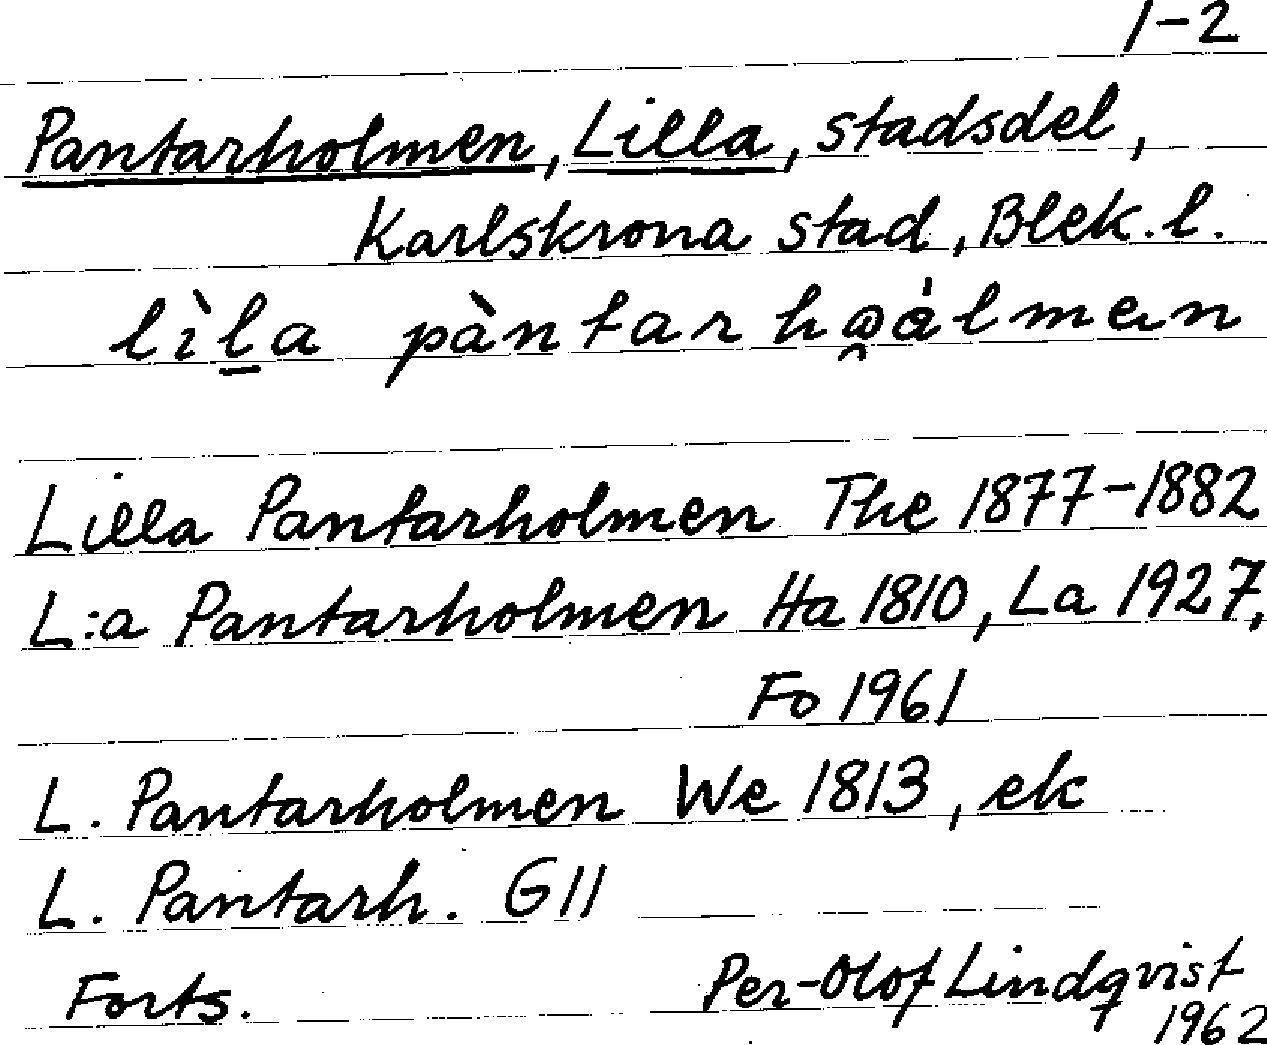 1-2
Pantarholmen, Lilla, stadsdel,
Karlskrona stad, Blek. l.
Lilla Pantarholmen The 1877-1882
L:a Pantarholmen Ha 1810, La 1927,
Fo 1961
L. Pantarholmen We 1813, ek
L. Pantarh. G11
Forts. Per-Olof Lindqvist
1962